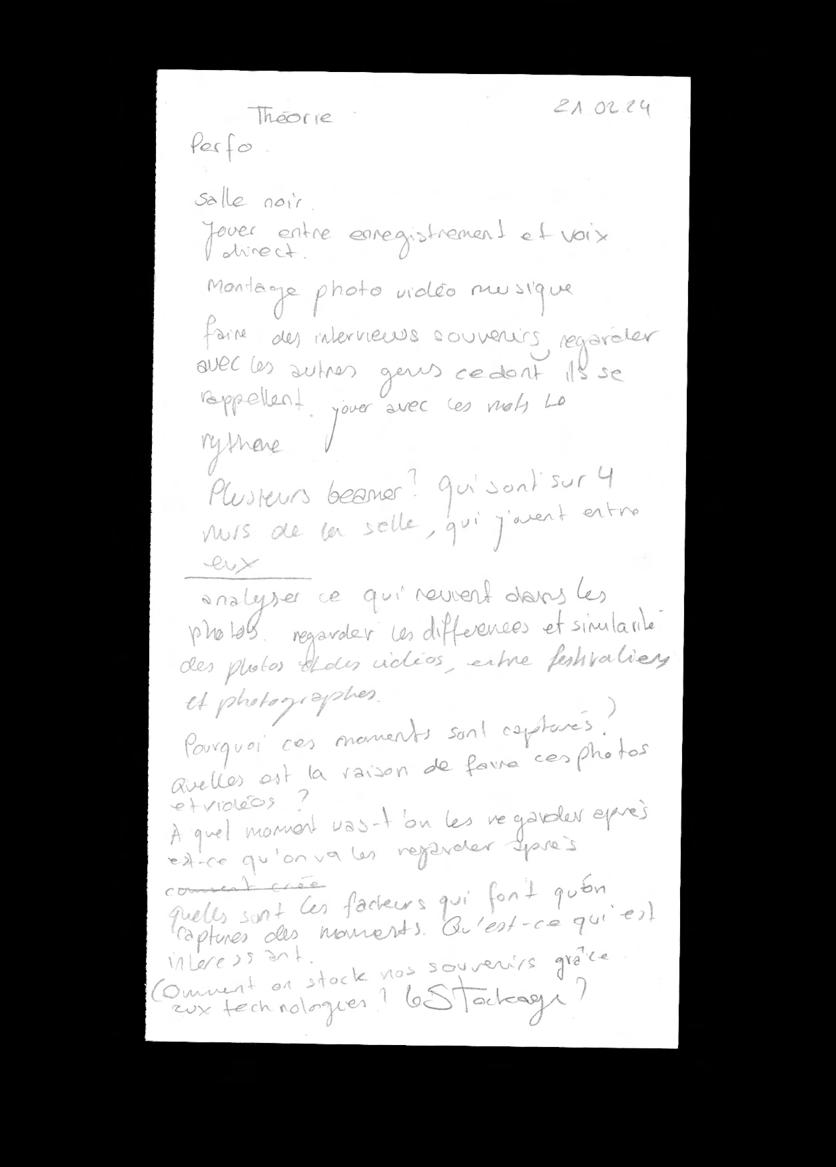 Théorie 21 02 24
Perfo.
salle noir.
Jouer entre enregistrement et voix
direct.
Montage photo vidéo musique
faire des interviews souvenirs, regarder
avec les autres gens ce dont ils se
rappellent. jouer avec les mots Lo
rythme
Plusieurs beamer? qui sont sur 4
murs de la salle, qui jouent entre
eux
analyser ce qui revient dans les
photos. regarder les différences et similarité
des photos et des vidéos, entre festivaliers
et photographes.
Pourquoi ces moments sont capturés?
Quelles est la raison de faire ces photos
et vidéos ?
A quel moment vas-t'on les regarder après
est-ce qu'on va les regarder après
comment créé
quelles sont les facteurs qui font qu'on
captures des moments. Qu'est-ce qui est
interessant.
Comment on stock nos souvenirs grâce
aux technologies? Lo Stockage?